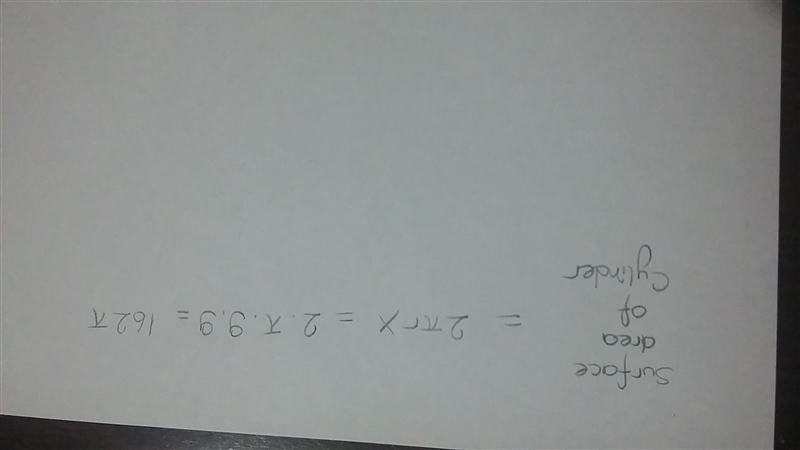 Surface
area
of
Cylinder
= 2πrx = 2.π.9.9 = 162π